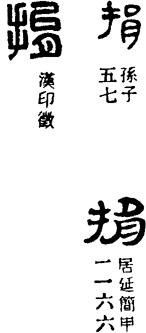 捐
孫子
五七
捐
居延簡甲
一一六六
捐
漢印徵